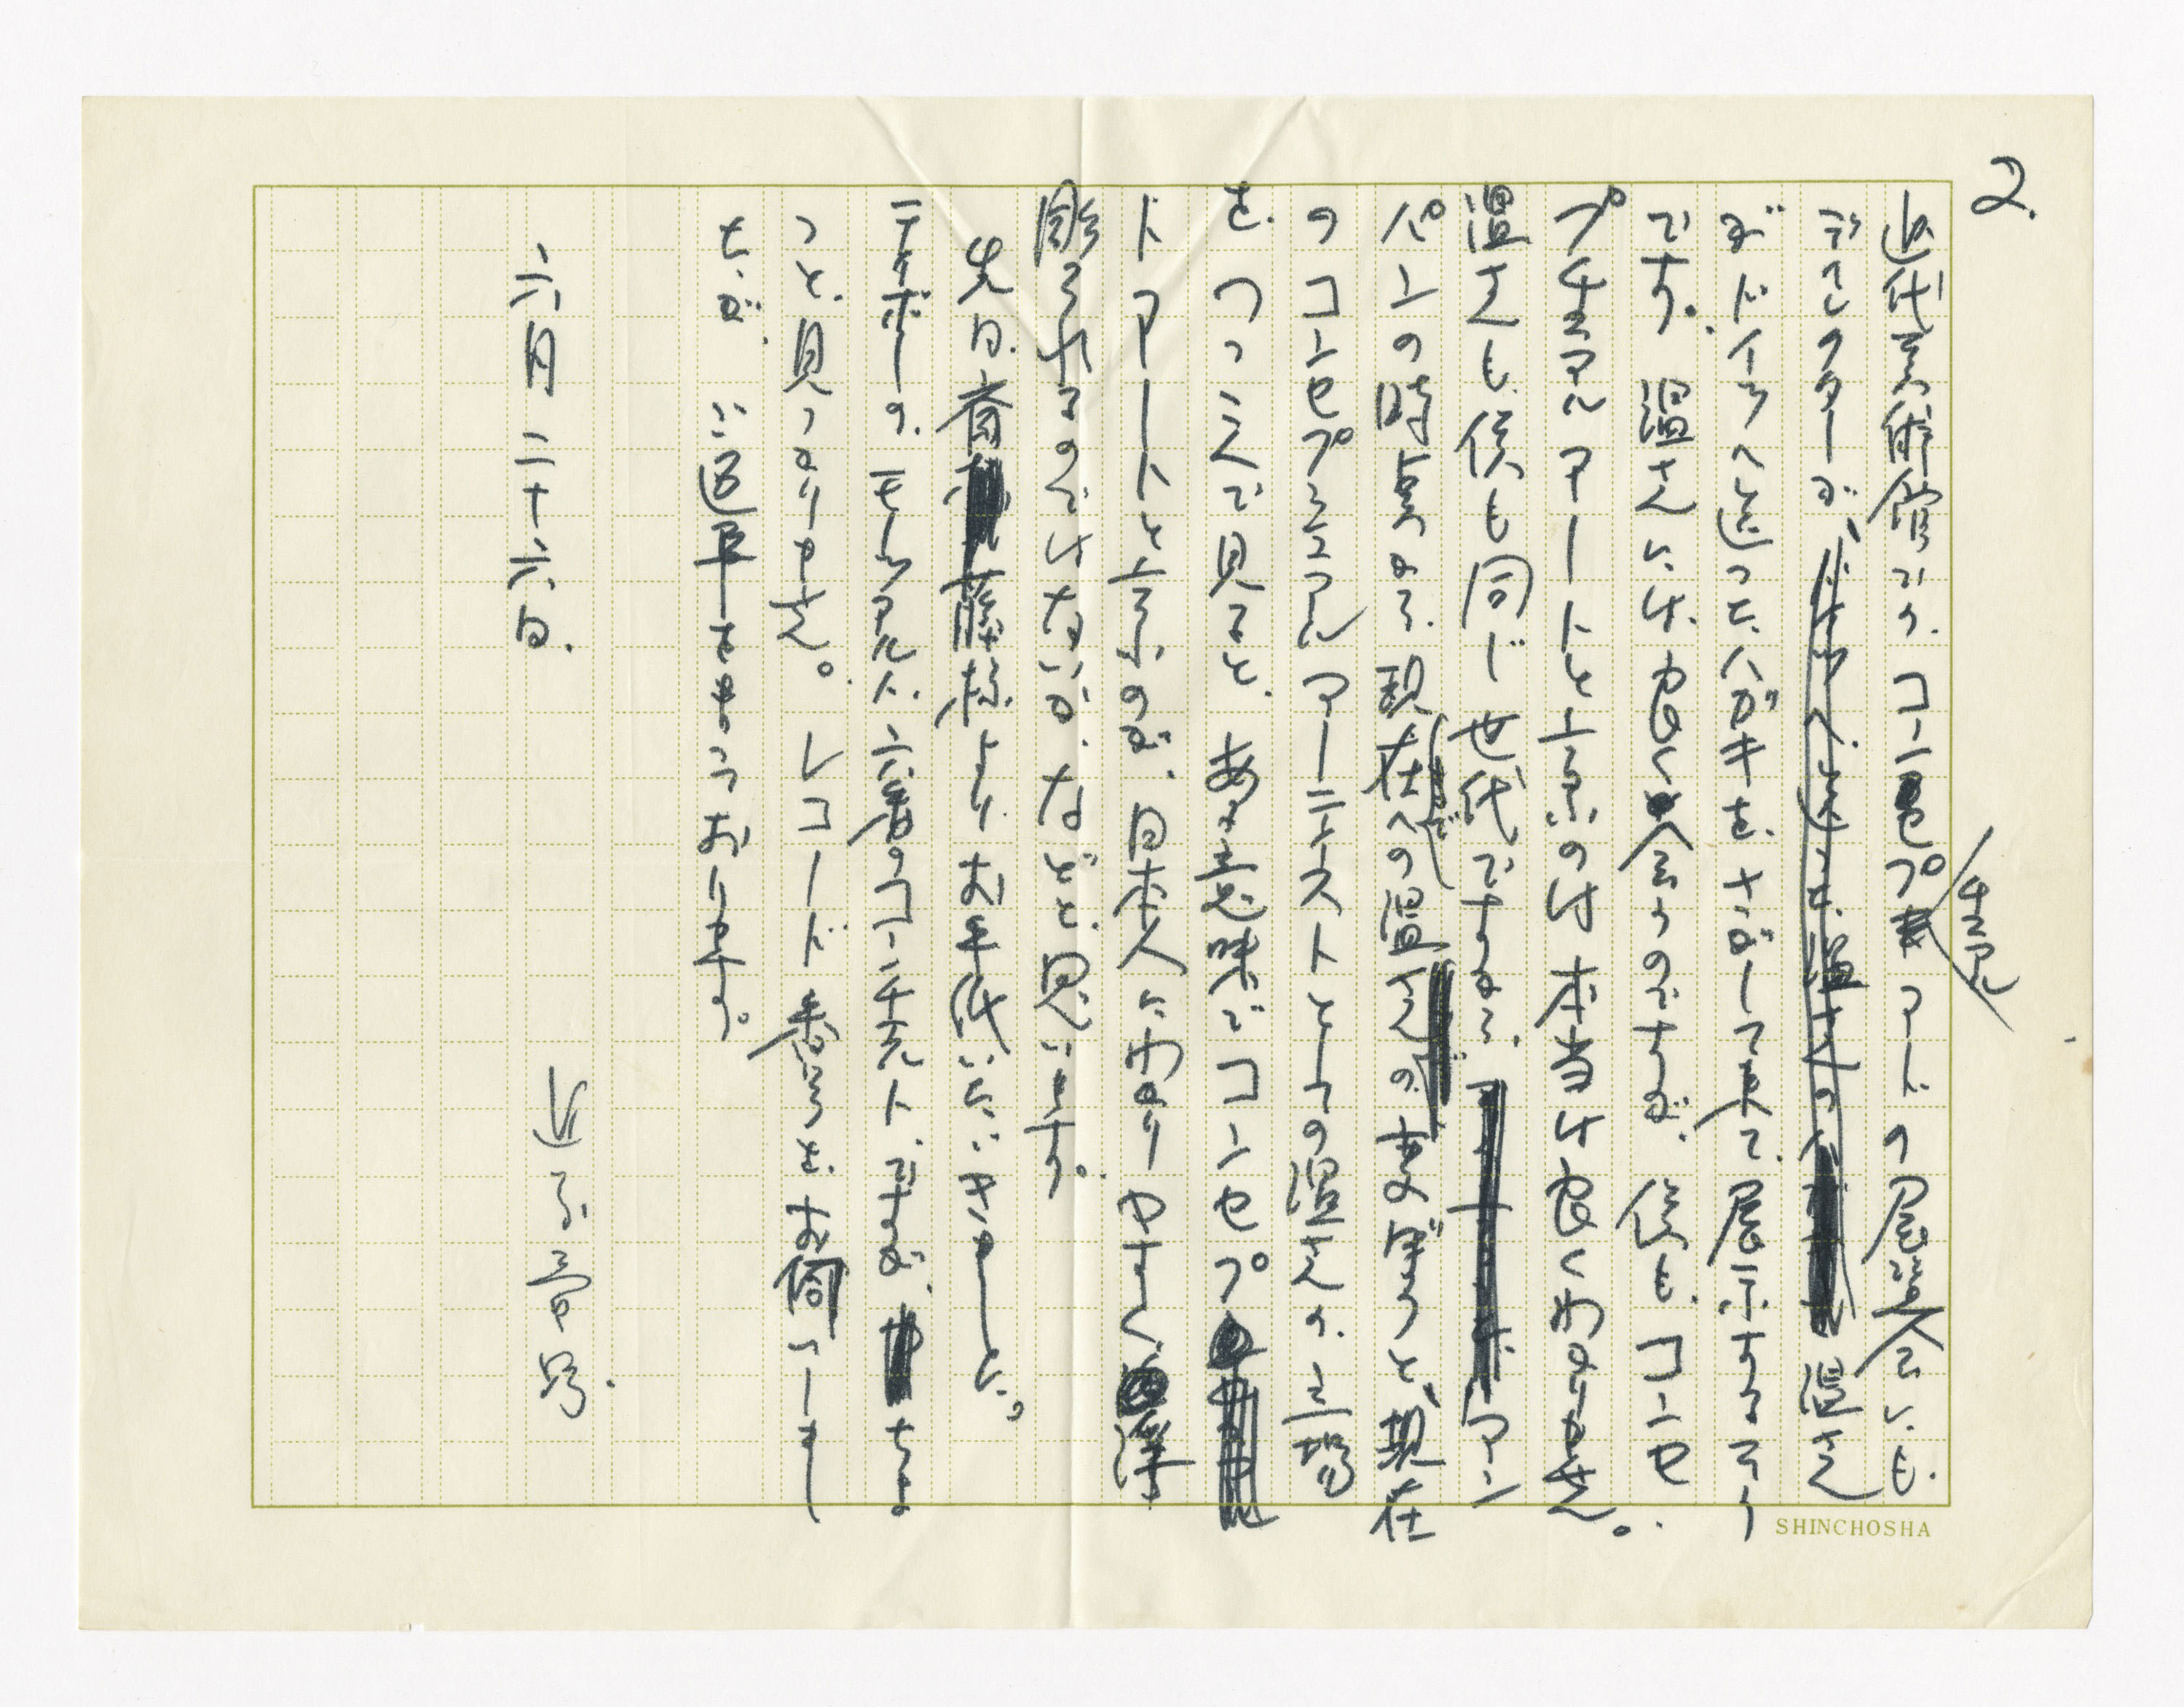 2.
近代美術館での、コンセプチュアルアートの展覧会にも、
ディレクターが、温さん
がドイツへ送ったハガキを、さがして来て、展示するそう
です。温さんには、良く会うのですが、僕も、コンセ
プチュアルアートと云うのは本当は良くわかりません。
温さんも、僕も同じ世代ですから、アン
パンの時真から、現在までの温さんの、あゆみ、現在
のコンセプチュアルアーティストとしての温さんの、立場
を、つつんで見ると、ある意味でコンセプ
トアートと云うのが、日本人にわかりやすく、浮
彫されるのではないか、などと、思います。
先日、斉藤様よりお手紙いただきました。
ティボーの、モーツアルト、六番のコンチェルト、ですが、ちょ
っと、見つかりません。レコード番号をお伺いしまし
たが、ご返事をまっております。
六月二十六日.
SHINCHOSHA